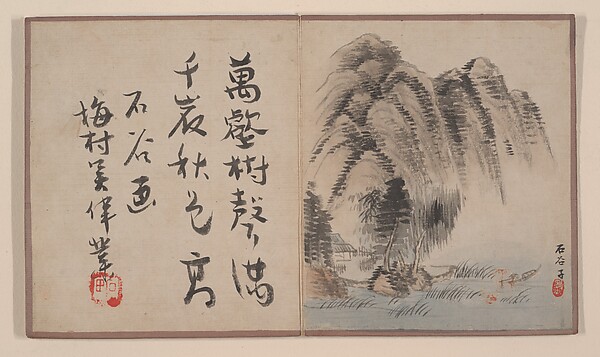 萬壑樹聲満
千嵓秋色高
石谷画
梅村吳偉業
石谷子